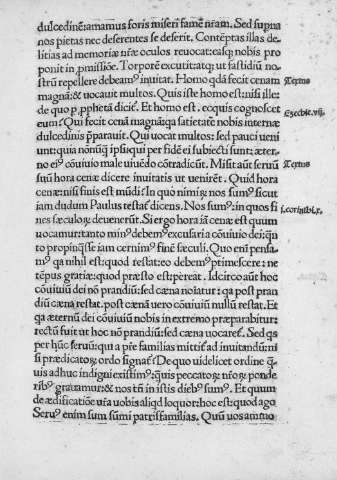 dulcedinē: amamus foris miseri famē nr̄am. Sed supna
nos pietas nec deserentes se deserit. Contēptas illas de-
litias ad memoriā nr̄æ oculos reuocat: easq; nobis pro
ponit in ꝓmissiōe. Torporē excutit atq; ut fastidiū no-
strū repellere debeamꝰ inuitat. Homo qdā fecit cenam
Textus
magnā: & uocauit multos. Quis iste homo est: nisi ille:
de quo ꝓ ꝓphetā dicit̄. Et homo est. ecquis cognoscet
Ezechie. vij.
eum? Qui fecit cenā magnā: q̄a satietatē nobis internæ
dulcedinis p̄parauit. Qui uocat multos: sed pauci ueni
unt: quia nōnūq̄ ipsi qui per fidē ei subiecti sunt: æter-
no eiꝰ cōuiuio male uiuēdo cōtradicūt. Misit aūt seruū
Textus
suū hora cenæ dicere inuitatis ut uenirēt. Quid hora
cenæ: nisi finis est mūdi? In quo nimirꝫ nos sumꝰ sicut
iam dudum Paulus testat̄ dicens. Nos sumꝰ: in quos fi
i. corinthi. x.
nes sæculoꝝ deuenerūt. Si ergo hora iā cenæ est quum
uocamur: tanto minꝰ debemꝰ excusari a cōuiuio dei: q̄n
to propinq̄sse iam cernimꝰ finē sæculi. Quo eni pensa-
mꝰ qa nihil est: quod restat: eo debemꝰ ptimescere: ne
tēpus gratiæ: quod præsto est: pereat. Idcirco aūt hoc
cōuiuiū dei nō prandiū: sed cæna noiatur: qa post pran
diū cæna restat. post cænā uero cōuiuiū nullū restat. Et
qa æternū dei cōuiuiū nobis in extremo præparabitur:
rectū fuit ut hoc nō prandiū: sed cæna uocaret̄. Sed qs
per hūc seruū: qui a pr̄e familias mittit̄ ad inuitandū: ni
si prædicatoꝝ ordo signat̄? De quo uidelicet ordine q̄-
uis adhuc indigni existimꝰ: q̄uis peccatoꝝ nr̄oꝝ ponde
ribꝰ grauamur: & nos tn̄ in istis diebꝰ sumꝰ. Et quum
de ædificatiōe ur̄a uobis aliqd loquor: hoc est: quod ago
Seruꝰ enim sum sūmi patrisfamilias. Quū uos ammo